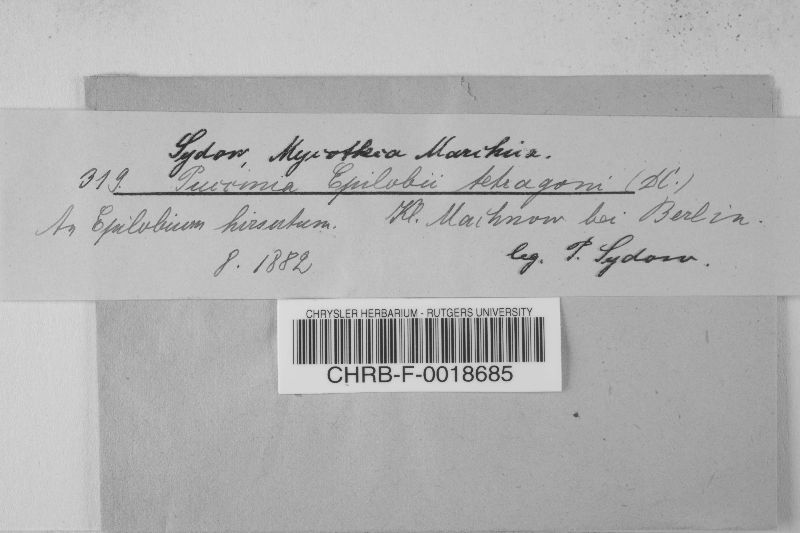 Sydow, Mycotheca Marchica.
319. Puccinia Epilobii tetragoni (DC.)
An Epilobium hirsutum. Kl. Machnow bei Berlin.
8. 1882 leg. P. Sydow.
CHRYSLER HERBARIUM - RUTGERS UNIVERSITY
CHRB-F-0018685